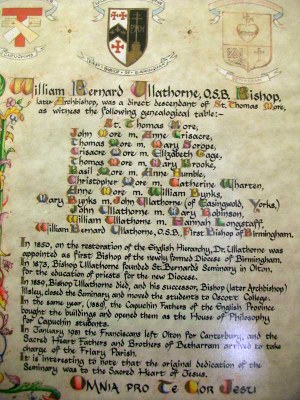 William Bernard Ullathorne, O.S.B. Bishop,
later Archbishop, was a direct descendant of St. Thomas More,
as witness the following genealogical table:-
St. Thomas More,
John More m. Anne Crisacre,
Thomas More m. Mary Scrope,
Crisacre More m. Elizabeth Gage,
Thomas More m. Mary Brooke,
Basil More m. Anne Humble,
Christopher More m. Catherine Wharten,
Anne More m. William Bunks,
Mary Bunks m. John Ullathorne (of Easingwold, Yorks,)
John Ullathorne m. Mary Robinson,
William Ullathorne m. Hannah Longstaff,
William Bernard Ullathorne, O.S.B., First Bishop of Birmingham.
In 1850, on the restoration of the English Hierarchy, Dr. Ullathorne was
appointed as first Bishop of the newly formed Diocese of Birmingham.
In 1873, Bishop Ullathorne founded St. Bernard's Seminary in Olton,
for the education of priests for the new Diocese.
In 1889, Bishop Ullathorne died, and his successor, Bishop (later Archbishop)
Ilsley, closed the Seminary and moved the students to Oscott College.
In the same year, (1889), the Capuchin Fathers of the English Province
bought the buildings and opened them as the House of Philosophy
for Capuchin students.
In January, 1981 the Franciscans left Olton for Canterbury, and the
Sacred Heart Fathers and Brothers of Betharram arrived to take
charge of the Friary Parish.
It is interesting to note that the original dedication of the
Seminary was to the Sacred Heart of Jesus.
OMNIA PRO TE COR JESU